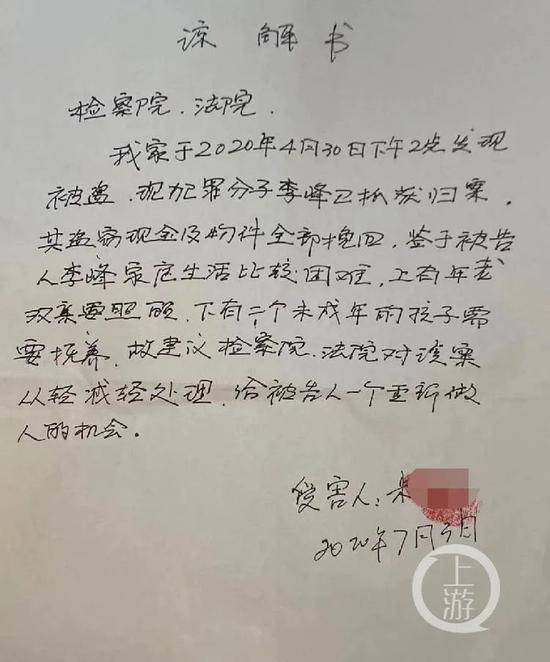 谅解书
检察院、法院.
我家于2020年4月30日下午2点发现
被盗,现犯罪分子李峰已抓获归案,
其盗窃现金及物件全部挽回,鉴于被告
人李峰家庭生活比较困难,上有年老
双亲要照顾,下有二个未成年的孩子需
要抚养,故建议检察院、法院对该案
从轻减轻处理,给被告人一个重新做
人的机会。
受害人:
2020年7月3日
上游